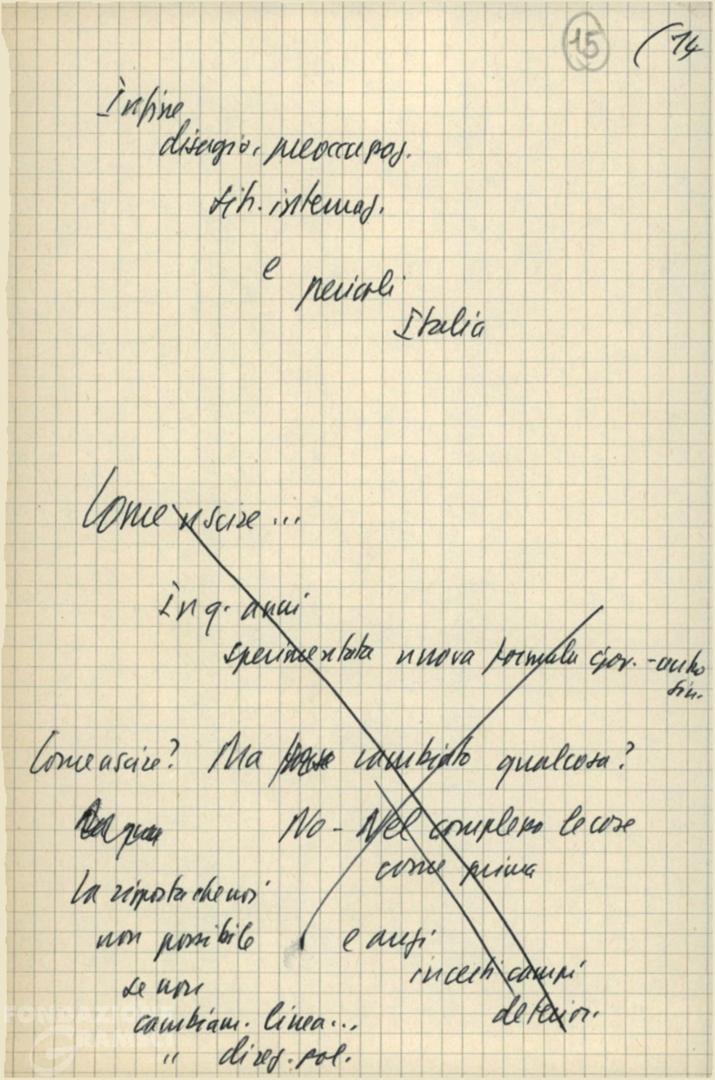 15 (14
Infine
disagio, preoccupaz.
sit. internaz.
e
pericoli
Italia
Come uscire...
In q. anni
sperimentata nuova formula gov. - centro
sin.
Come uscire? Ma cambiato qualcosa?
No - Nel complesso le cose
come prima
La risposta che noi
non possibile
e anzi
in certi campi
se non
deterior.
cambiam. linea...
" direz. pol.